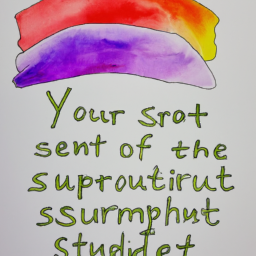 Your srot
sent of the
suproutirut
ssurmphut
studidet